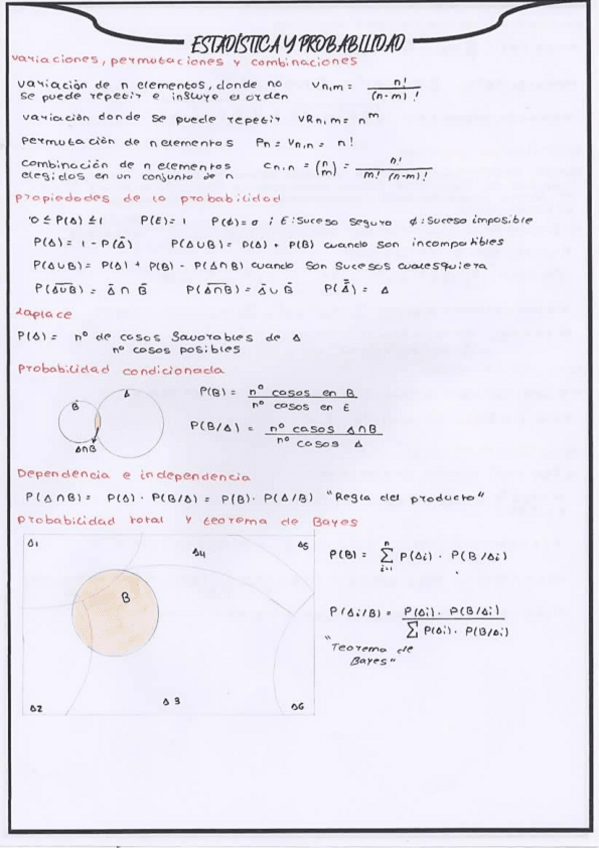 ESTADÍSTICA Y PROBABILIDAD
variaciones, permutaciones y combinaciones
variación de n elementos, donde no se puede repetir e influye el orden Vn,m = n! / (n-m)!
variación donde se puede repetir VRn,m = n^m
permutación de n elementos Pn = Vn,n = n!
combinación de n elementos elegidos en un conjunto de n Cn,n = (n m) = n! / m! (n-m)!
propiedades de la probabilidad
0 ≤ P(A) ≤ 1 P(E) = 1 P(∅) = 0 ; E: Suceso seguro ∅: Suceso imposible
P(A) = 1 - P(Ā) P(A∪B) = P(A) + P(B) cuando son incompatibles
P(A∪B) = P(A) + P(B) - P(A∩B) cuando son sucesos cualesquiera
P(A̅∪̅B̅) = Ā ∩ B̄ P(A̅∩̅B̅) = Ā ∪ B̄ P(A̿) = A
Laplace
P(A) = nº de casos favorables de A
nº casos posibles
Probabilidad condicionada
B A A∩B
P(B) = nº casos en B / nº casos en E
P(B/A) = nº casos A∩B / nº casos A
Dependencia e independencia
P(A∩B) = P(A) · P(B/A) = P(B) · P(A/B) "Regla del producto"
probabilidad total y teorema de Bayes
A1 A4 A5
B
A2 A3 A6
P(B) = n Σ i=1 P(Ai) · P(B/Ai)
P(Ai/B) = P(Ai) · P(B/Ai) / Σ P(Ai) · P(B/Ai)
"Teorema de
Bayes"